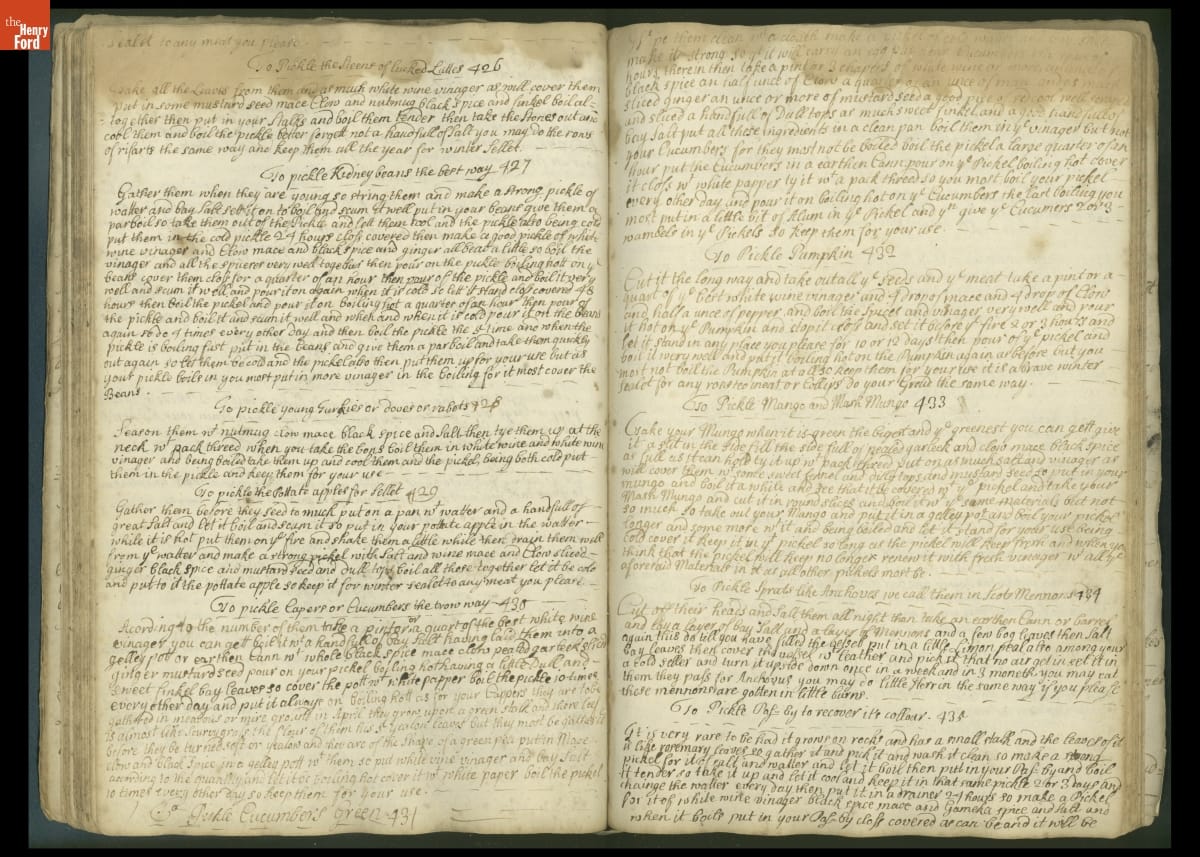 the
Henry
Ford
Sealet to any meat you please
To Pickle the Steens of Lucked Lattes 426
Take all the Leaves from them and as much white wine vinager as will cover them
put in some mustard seed mace Clow and nutmug black spice and finkel boil al-
together then put in your Stalks and boil them tender then take the Stones out and
cool them and boil the pickle better forgett not a handfull of Salt you may do the rons
of rifarts the same way and keep them all the year for winter Sellet.
To pickle Kidney beans the best way 427
Gather them when they are young so string them and make a strong pickle of
watter and bay Salt sett it on to boil and scum it well put in your beans give them a
parboil so take them out of the Pickle and lett them cool and the pickle also being cold
put them in the cold pickle 24 hours closs covered then make a good pickle of white
wine vinager and Clow mace and black spice and ginger all beat a little so boil the
vinager and all the spicerer very well together then pour on the pickle boiling hott on ye
beans cover them closs for a quarter of an hour then pour of the pickle and boil it very
well and scum it well and pour it on again when it is cold so let it stand closs covered 48
hours then boil the pickel and pour it on boiling hot a quarter of an hour then pour of
the pickle and boil it and scum it well and when and when it is cold pour it on the beans
again so do 4 times every other day and then boil the pickle the 5 time and when the
pickle is boiling fast put in the beans and give them a parboil and take them quickly
out again so let them be cold and the pickel also then put them up for your use but as
your pickle boils in you most put in more vinager in the boiling for it most cover the
Beans.
To pickle young Turkies or doves or rabots 428
Season them wt nutmug clow mace black spice and Salt then tye them up at the
neck wt pack threed when you take the bons boil them in white wine and white wine
vinager and being boiled take them up and cool them and the pickel, being both cold put
them in the pickle and keep them for your use
To pickle the Pottate apples for Sellet 429
Gather them before they seed to much put on a pan wt watter and a handfull of
great Salt and let it boil and scum it so put in your pottate apple in the watter
while it is hot put them on ye fire and shake them a little while then drain them well
from ye watter and make a strong pickel with Salt and wine mace and Clow sliced
ginger black spice and mustard seed and dull tops boil all these together let it be cold
and put to it the pottate apple so keep it for winter sealet to any meat you pleas
To pickle Capers or Cucumbers the trow way 430
Acording to the number of them take a pint or a quart of the best white wine
vinager you can gett boil it wt a handfull of bay Salt having laid them into a
gelley pot or earthen Cann wt whole black spice mace clow pealed garleek sliced
ginger mustard seed pour on your pickel boiling hot having a little Dull and
sweet finkel bay leaves so cover the pott wt white papper boil the pickle 10 times
every other day and put it always on boiling hott as for your Cappers they are to be
gathered in meadous or mire ground in April they grow upon a green stalk and there leaf
is almost like scurvy grass the flour of them has yealow leaves but they most be gathered
before they be turned soft or yealow and they are of the shape of a green pea put in Mace
clow and black Spice in a gelley pott wt them so put white wine vinager and bay Salt
according to the quantety and let it be boiling hot cover it wt white paper boil the pickel
10 times every other day so keep them for your use.
To Pickle Cucumbers Green 431
Wipe them clean wt a cloath make a pickel of
make it strong so yt it will carry an egg put your Cucumbers
hours therein then take a pint or 3 chapens of white wine or
black spice an half unce of Clow a quarter of an unce of
sliced ginger an unce or more of mustard seed a good
and sliced a handfull of Dull tops as much sweet finkel and a good handfull of
bay Salt put all these ingredients in a clean pan boil them in ye vinager but not
your Cucumbers for they most not be boiled boil the pickel a large quarter of an
hour put the Cucumbers in a earthen Cann pour on ye Pickel boiling hot cover
it closs wt white papper ty it wt a pack threed so you most boil your pickel
every other day and pour it on boiling hot on ye Cucumbers the last boiling you
most put in a little bit of Alum in ye Pickel and ye give ye Cucumers 2 or 3
wambels in ye Pickels so keep them for your use
To Pickle Pumpkin 432
Cut it the long way and take out all ye Seeds and ye meat take a pint or a
quart of ye best white wine vinager and 4 drop of mace and 4 drop of Clow
and half a unce of pepper, and boil the spices and vinager very well and pour
it hot on ye Pumpkin and stop it closs and set it before ye fire 2 or 3 hours and
let it stand in any place you please for 10 or 12 days then pour of ye pickel and
boil it very well and put it boiling hot on the Pumpkin again as before but you
most not boil the Pumpkin at all so keep them for your use it is a brave winter
sealet for any rosted meat or Collips do your Groud the same way.
To Pickle Mango and Mash Mungo 433
Take your Mungo when it is green the bigest and ye greenest you can gett give
it a slit in the side fill the side full of pealed garleek and clow mace black spice
as full as it can hold ty it up wt pack threed put on as much salt and vinager as
will cover them wt some sweet fennel and duly tops and mustard seed so put in your
mungo and boil it a while and see that it be covered wt ye pickel and take your
Mash Mungo and cut it in round slices and boil it in ye same materials but not
so much so take out your Mungo and put it in a gelley pot and boil your pickel
longer and some more wt it and being boiled and let it stand for your use being
cold cover it keep it in yt pickel so long as the pickel will keep fresh and when you
think that the pickel will keep no longer renew it with fresh vinager wt all ye
aforesaid Materials in it as all other pickels most be.
To Pickle Sprats like Anchoves we call them in Scots Mennons 434
Cut off their heads and Salt them all night than take an earthen Cann or barrel
and lay a layer of bay Salt and a layer of Mennons and a few bog leaves then Salt
again this do till you have filled the vessel put in a little Limon peal also among your
bay leaves then cover the vessel wt leather and pick it that no air get in set it in
a cold seller and turn it upside down once in a week and in 3 moneth you may eat
them they pass for Anchovus you may do little Herrin the same way if you please
these mennons are gotten in little burns.
To Pickle Pas-by to recover it's collour. 435
It is very rare to be had it grows on rocks and has a small stalk and the leaves of it
is like rosemary leaves so gather it and pick it and wash it clean so make a strong
pickel for it of salt and watter and let it boil then put in your Pas-by and boil
it tender so take it up and let it cool and keep it in that same pickle 2 or 3 days and
change the watter every day then put it in a drainer 24 hours so make a Pickel
for it of white wine vinager black spice mace and Jameka spice and Salt and
when it boils put in your Pas-by closs covered as can be and it will be